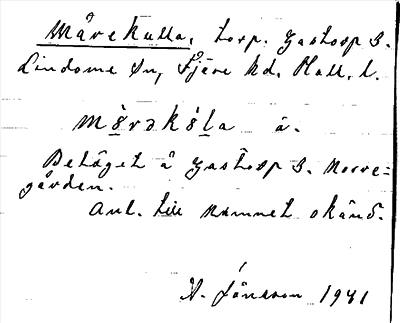 Mårekulla, torp. Gastorp 3.
Lindome Sn, Fjäre hd, Hall. l.
mɔ̀rəkɔ́la ä.
Beläget å Gastorp 3. Norre=
gården.
Anl. till namnet okänd.
A. Jönsson 1941